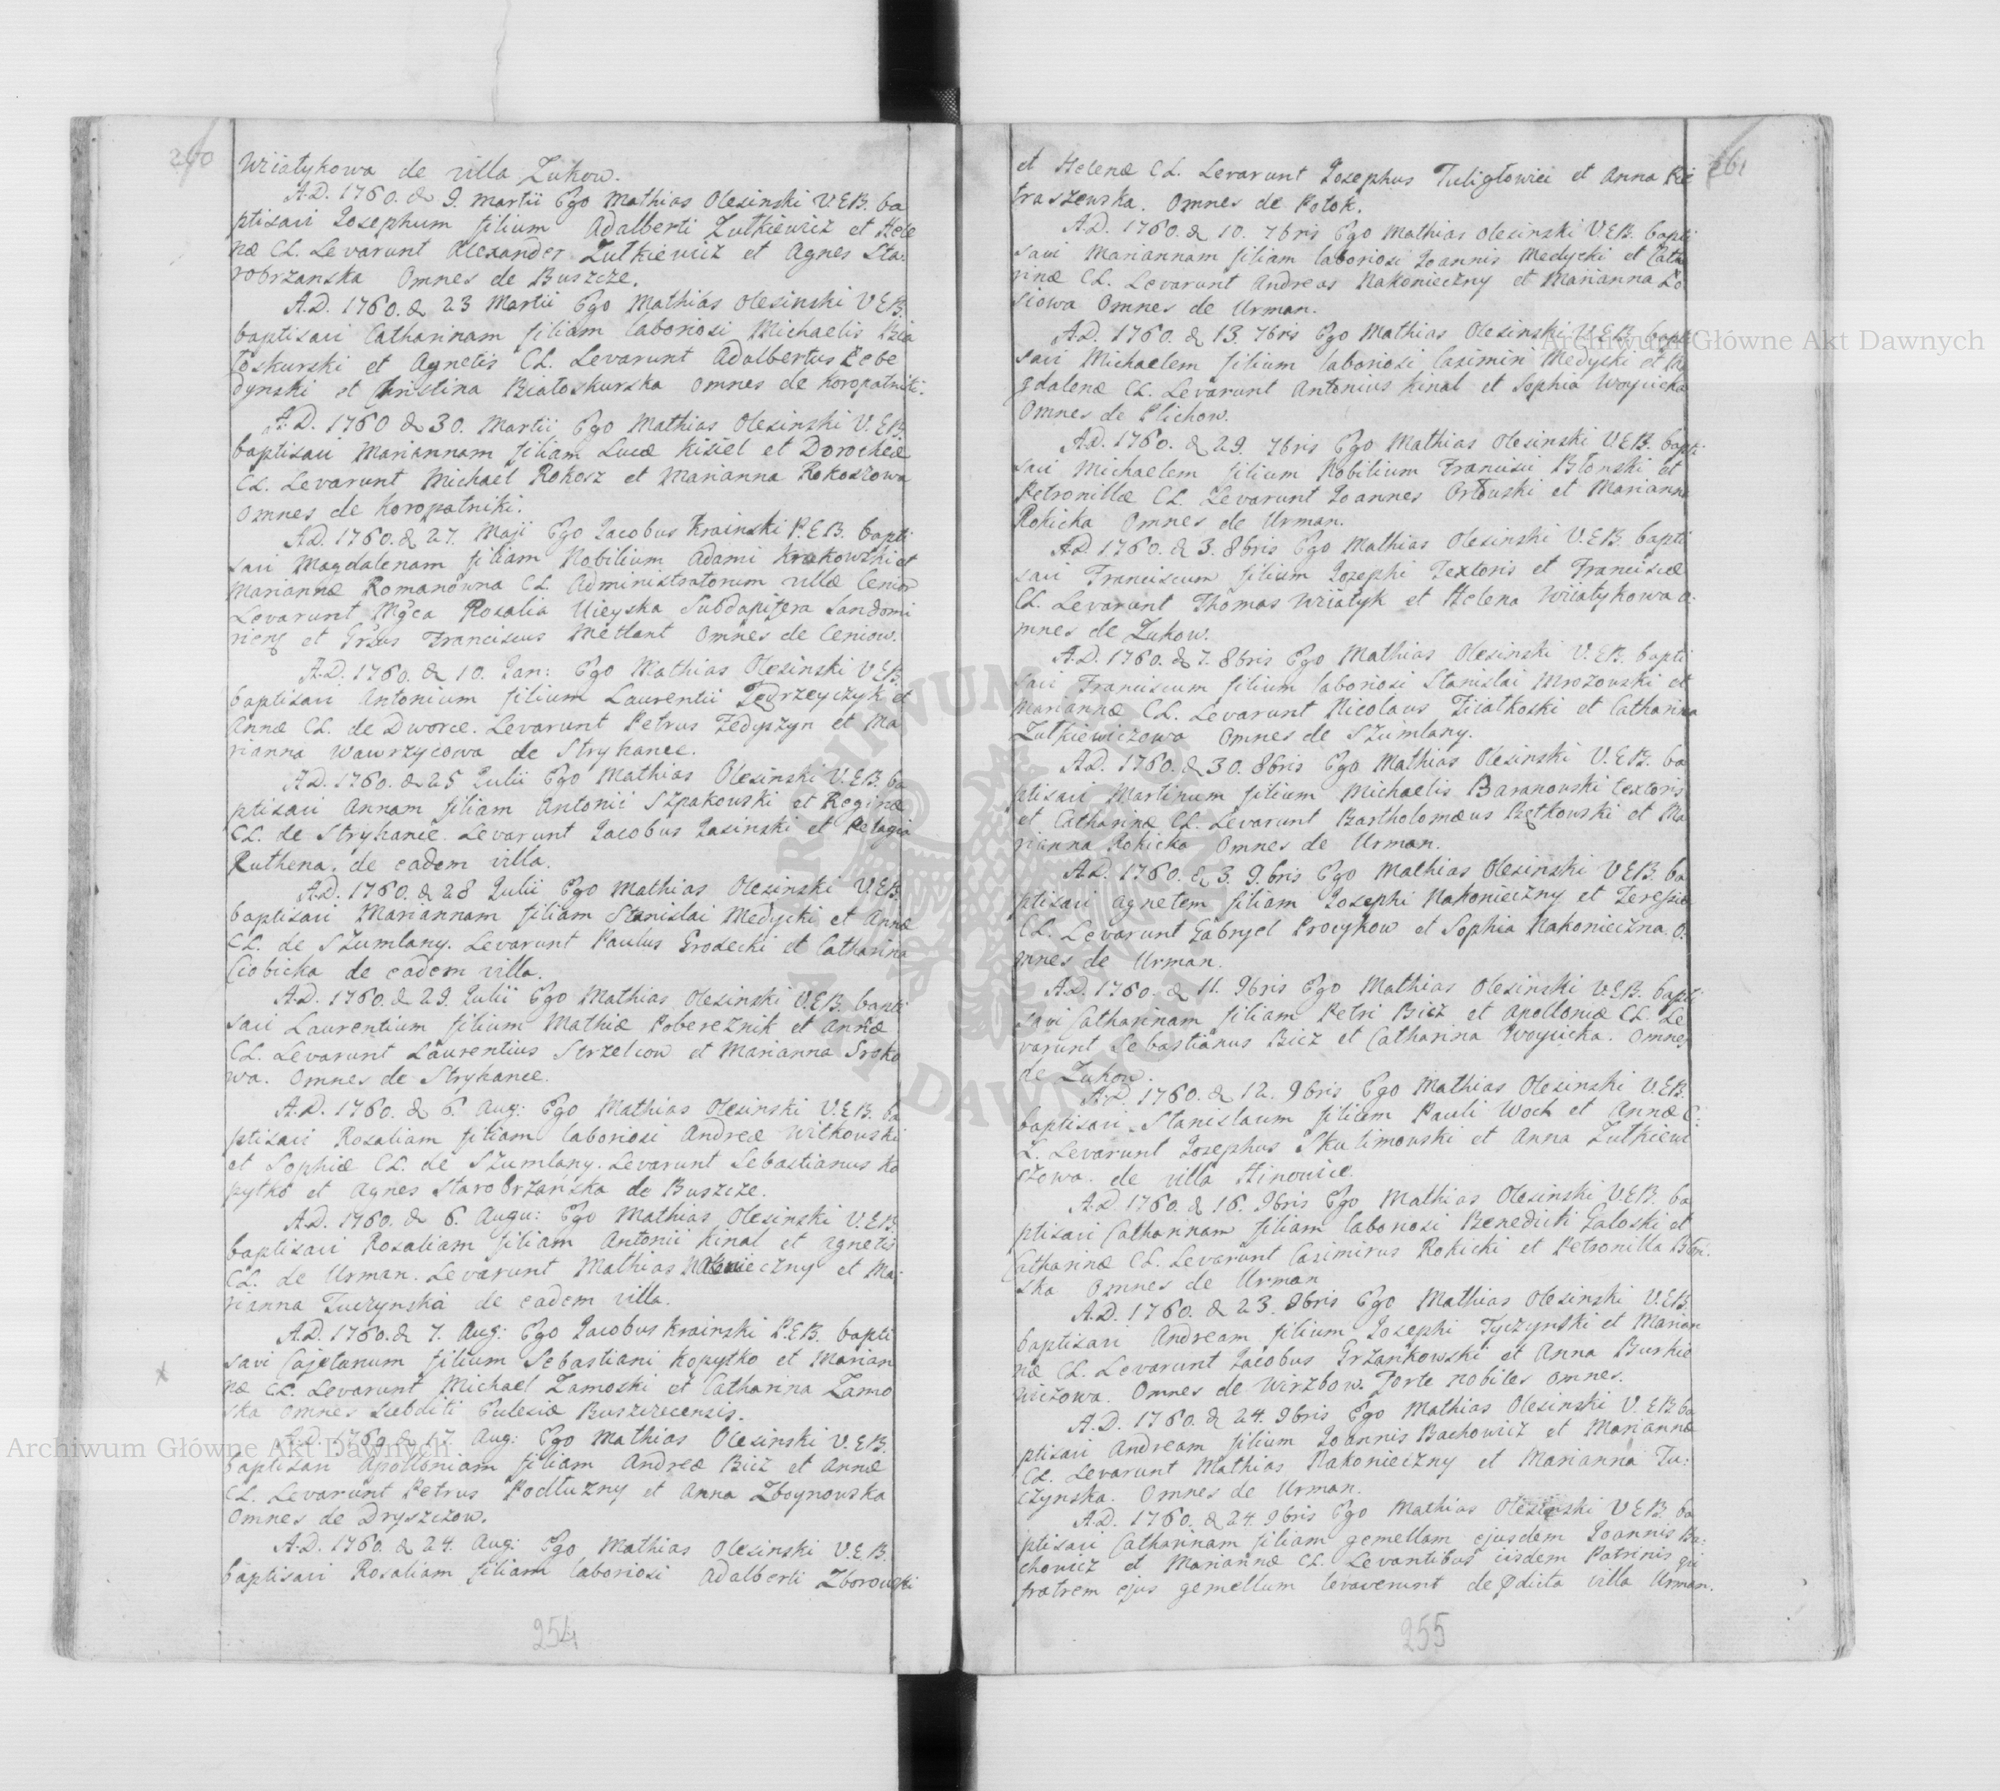 260
Wziatykowa de villa Zukow.
A.D. 1760. d. 9. Martii Ego Mathias Olesinski V.E.B. ba
ptisavi Josephum filium Adalberti Zutkiewicz et Hele
næ CL. Levarunt Alexander Zutkiewicz et Agnes Sta:
robrzanska Omnes de Buszcze.
A.D. 1760. d. 23 Martii Ego Mathias Olesinski V.E.B.
baptisavi Catharinam filiam laboriosi Michaelis Bia
łoskurski et Agnetis CL. Levarunt Adalbertus Lebe
dynski et Christina Białoskurska Omnes de Koropatniki.
A.D. 1760 d. 30. Martii Ego Mathias Olesinski V.E.B.
baptisavi Mariannam filiam Lucæ Kisiel et Dorotheæ
CL. Levarunt Michael Rokosz et Marianna Rokoszowa
Omnes de Koropatniki.
A.D. 1760. d. 27. Maji Ego Jacobus Krainski P.E.B. bapti
savi Magdalenam filiam Nobilium Adami Krakowski et
Mariannæ Romanowna CL. Administratorum villæ Ceniow
Levarunt Mgca Rosalia Uieyska Subdapifera Sandomi
riens et Grsus Franciscus Metlant Omnes de Ceniow.
A.D. 1760. d. 10. Jan: Ego Mathias Olesinski V.E.B.
baptisavi Antonium filium Laurentii Jedrzeyczyk et
Annæ CL. de Dworce. Levarunt Petrus Fedyszyn et Ma
rianna Wawrzycowa de Stryhance.
A.D. 1760. d. 25 Julii Ego Mathias Olesinski V.E.B. ba
ptisavi Annam filiam Antonii Szpakowski et Reginæ
CL. de Stryhance. Levarunt Jacobus Jasinski et Pelagia
Ruthena, de eadem villa.
A.D. 1760. d. 28 Julii Ego Mathias Olesinski V.E.B.
baptisavi Mariannam filiam Stanislai Medycki et Annæ
CL. de Szumlany. Levarunt Paulus Grodecki et Catharina
Ciobicka de eadem villa.
A.D. 1760. d. 29. Julii Ego Mathias Olesinski V.E.B. bapti
savi Laurentium filium Mathiæ Pobereznik et Annæ
CL. Levarunt Laurentius Strzelcow et Marianna Sroko
wa. Omnes de Stryhance.
A.D. 1760. d. 6. Aug: Ego Mathias Olesinski V.E.B. ba
ptisavi Rosaliam filiam laboriosi Andreæ Witkowski
et Sophiæ CL. de Szumlany. Levarunt Sebastianus Ko
pytko et Agnes Starobrzańska de Buszcze.
A.D. 1760. d. 6. Augu: Ego Mathias Olesinski V.E.B.
baptisavi Rosaliam filiam Antonii Kinal et Agnetis
CL. de Urman. Levarunt Mathias Nakonieczny et Ma:
rianna Tuczynska de eadem villa.
A.D. 1760. d. 7. Aug: Ego Jacobus Krainski P.E.B. bapti
savi Cajetanum filium Sebastiani Kopytko et Marian
næ CL. Levarunt Michael Zamoski et Catharina Zamo
ska Omnes Subditi Eclesiæ Buszczecensis.
A.D. 1760. d. 17. Aug: Ego Mathias Olesinski V.E.B.
baptisavi Apolloniam filiam Andreæ Bicz et Annæ
CL. Levarunt Petrus Podłuzny et Anna Zboynowska
Omnes de Dryszczow.
A.D. 1760. d. 24. Aug: Ego Mathias Olesinski V.E.B.
baptisavi Rosaliam filiam laboriosi Adalberti Zborowski
254
261
et Helenæ CL. Levarunt Josephus Tuligłowicz et Anna Pie
traszewska. Omnes de Potok.
A.D. 1760. d. 10. 7bris Ego Mathias Olesinski V.E.B. bapti
savi Mariannam filiam laboriosi Joannis Medycki et Catha
rinæ CL. Levarunt Andreas Nakonieczny et Marianna Lo
siowa Omnes de Urman.
A.D. 1760. d. 13. 7bris Ego Mathias Olesinski V.E.B. bapti
savi Michaelem filium laboriosi Casimiri Medyski et Ma
gdalenæ CL. Levarunt Antonius Kinal et Sophia Woyucka
Omnes de Plichow.
A.D. 1760. d. 29. 7bris Ego Mathias Olesinski V.E.B. bapti
savi Michaelem filium Nobilium Francisci Błonski et
Petronillæ CL. Levarunt Joannes Orłowski et Marianna
Rokicka Omnes de Urman.
A.D. 1760. d. 3. 8bris Ego Mathias Olesinski V.E.B. bapti
savi Franciscum filium Josephi Textoris et Franciscæ
CL. Levarunt Thomas Wziatyk et Helena Wziatykowa O:
mnes de Zukow.
A.D. 1760. d. 7. 8bris Ego Mathias Olesinski V.E.B. bapti
savi Franciscum filium laboriosi Stanislai Mrozowski et
Mariannæ CL. Levarunt Nicolaus Fiiałkoski et Catharina
Zutkiewiczowa Omnes de Szumlany.
A.D. 1760. d. 30. 8bris Ego Mathias Olesinski V.E.B. ba
ptisavi Martinum filium Michaelis Baranowski textoris
et Catharinæ CL. Levarunt Bartholomæus Bętkowski et Ma
rianna Rokicka Omnes de Urman.
A.D. 1760. d. 3. 9.bris Ego Mathias Olesinski V.E.B. ba
ptisavi Agnetem filiam Josephi Nakonieczny et Teressiæ
CL. Levarunt Gabryel Procykow et Sophia Nakonieczna. O:
mnes de Urman.
A.D. 1760. d. 11. 9bris Ego Mathias Olesinski V.E.B. bapti
savi Catharinam filiam Petri Bicz et Apolloniæ CL. Le
varunt Sebastianus Bicz et Catharina Woyucka. Omnes
de Zukow.
A.D. 1760. d. 12. 9bris Ego Mathias Olesinski V.E.B.
baptisavi Stanislaum filium Pauli Woch et Annæ C:
L. Levarunt Josephus Skulimowski et Anna Zutkiewi
czowa. de villa Hinowice.
A.D. 1760. d. 16. 9bris Ego Mathias Olesinski V.E.B. ba
ptisavi Catharinam filiam laboriosi Benedicti Galoski et
Catharinæ CL. Levarunt Casimirus Rokicki et Petronilla Błon:
ska Omnes de Urman
A.D. 1760. d. 23. 9bris Ego Mathias Olesinski V.E.B.
baptisavi Andream filium Josephi Tyczynski et Marian
næ CL. Levarunt Jacobus Grzankowski et Anna Burkie
wiczowa. Omnes de Wirzbow. Forte nobiles omnes.
A.D. 1760. d. 24. 9bris Ego Mathias Olesinski V.E.B. ba
ptisavi Andream filium Joannis Bachowicz et Mariannæ
CL. Levarunt Mathias Nakonieczny et Marianna Tu:
czynska. Omnes de Urman.
A.D. 1760. d. 24. 9bris Ego Mathias Olesinski V.E.B. ba
ptisavi Catharinam filiam gemellam ejusdem Joannis Ba:
chowicz et Mariannæ CL. Levantibus iisdem Patrinis qui
fratrem ejus gemellum levaverunt de pdicta villa Urman.
255
Archiwum Główne Akt Dawnych
Archiwum Główne Akt Dawnych
ARCHIWUM GŁÓWNE AKT DAWNYCH